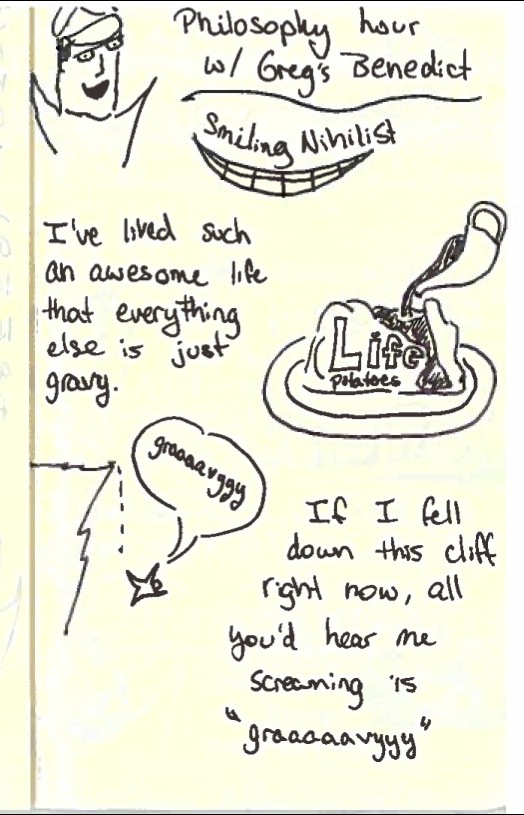 Philosophy hour
w/ Greg's Benedict
Smiling Nihilist
I've lived such
an awesome life
that everything
else is just
gravy.
Life
potatoes
graaaavggy
If I fell
down this cliff
right now, all
you'd hear me
screaming is
"graaaaavyyy"